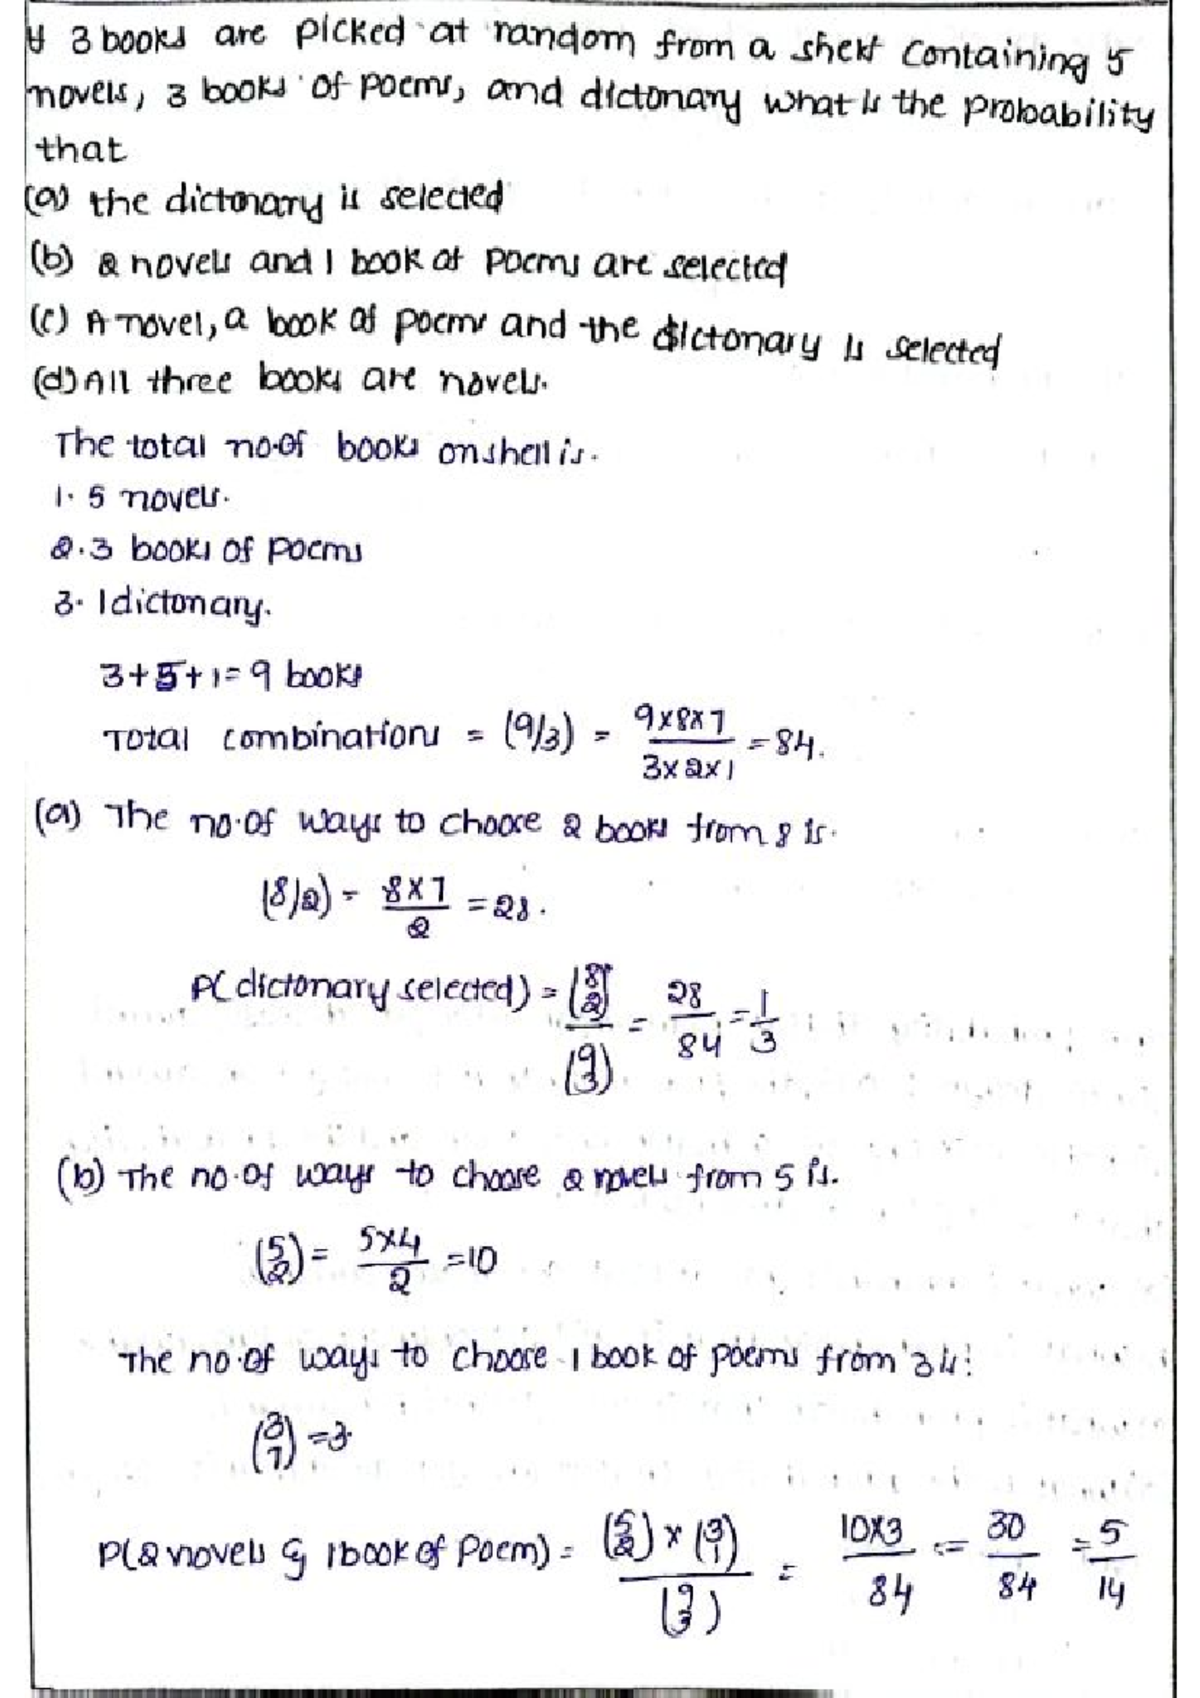 If 3 books are picked at random from a shelf containing 5
novels, 3 books of poems, and dictonary what is the probability
that
(a) the dictonary is selected
(b) 2 novels and 1 book of poems are selected
(c) A novel, a book of poems and the dictonary is selected
(d) All three books are novels.
The total no.of books on shell is.
1. 5 novels.
2. 3 books of poems
3. 1 dictonary.
3+5+1=9 books
Total combinations = (9/3) = 9x8x7 / 3x2x1 = 84.
(a) The no.of ways to choose 2 books from 8 is.
(8/2) = 8x7 / 2 = 28.
P(dictonary selected) = (8 2) / (9 3) = 28 / 84 = 1 / 3
(b) The no.of ways to choose 2 novels from 5 is.
(5 2) = 5x4 / 2 = 10
The no.of ways to choose 1 book of poems from 3 is:
(3 1) = 3.
P(2 novels & 1 book of poem) = (5 2) x (3 1) / (9 3) = 10x3 / 84 = 30 / 84 = 5 / 14